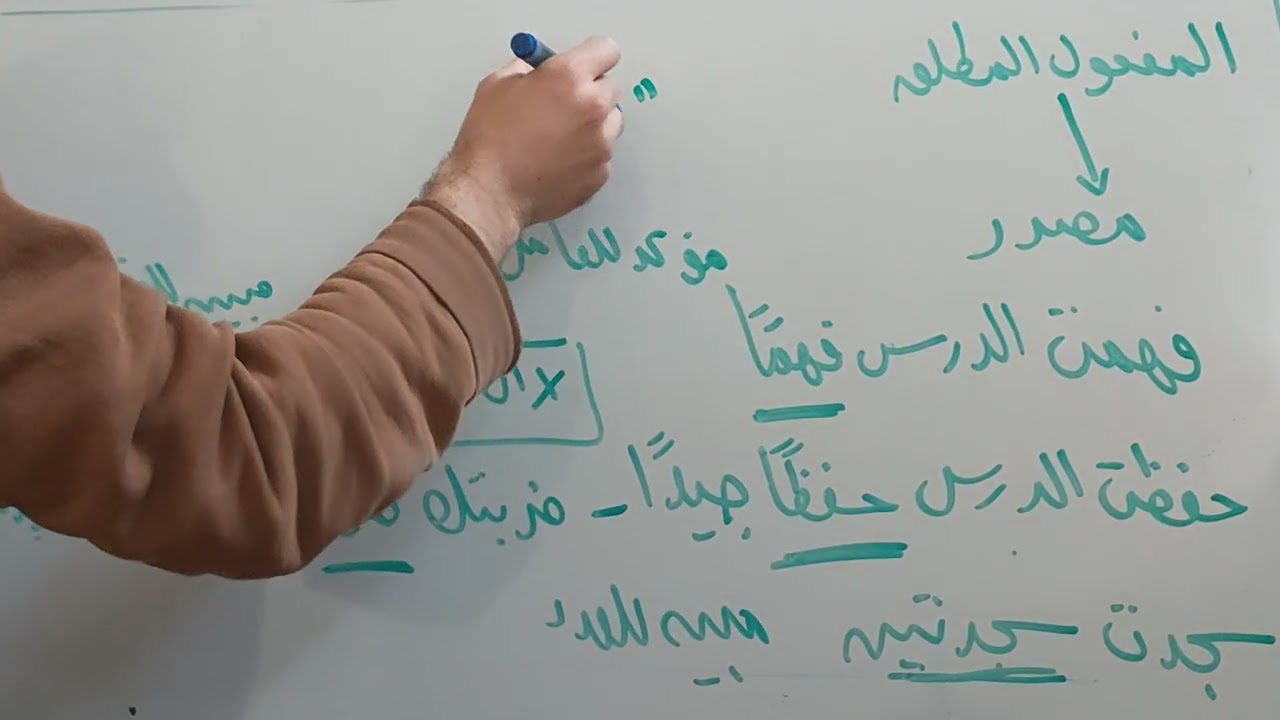 المفعول المطلق
مصدر
مؤكد للعامل
مبين
فهمت الدرس فهمًا
حفظت الدرس حفظًا جيدًا - ضربتك
سجدت سجدتين مبين للعدد